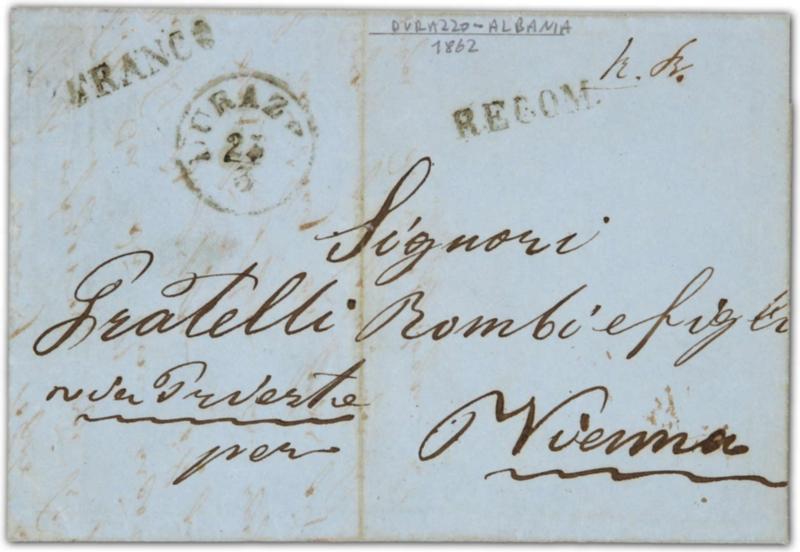 DURAZZO-ALBANIA
1862
FRANCO
DURAZZO
25
3
RECOM.
Signori
Fratelli Rombi e figli
via Trieste
per
Vienna